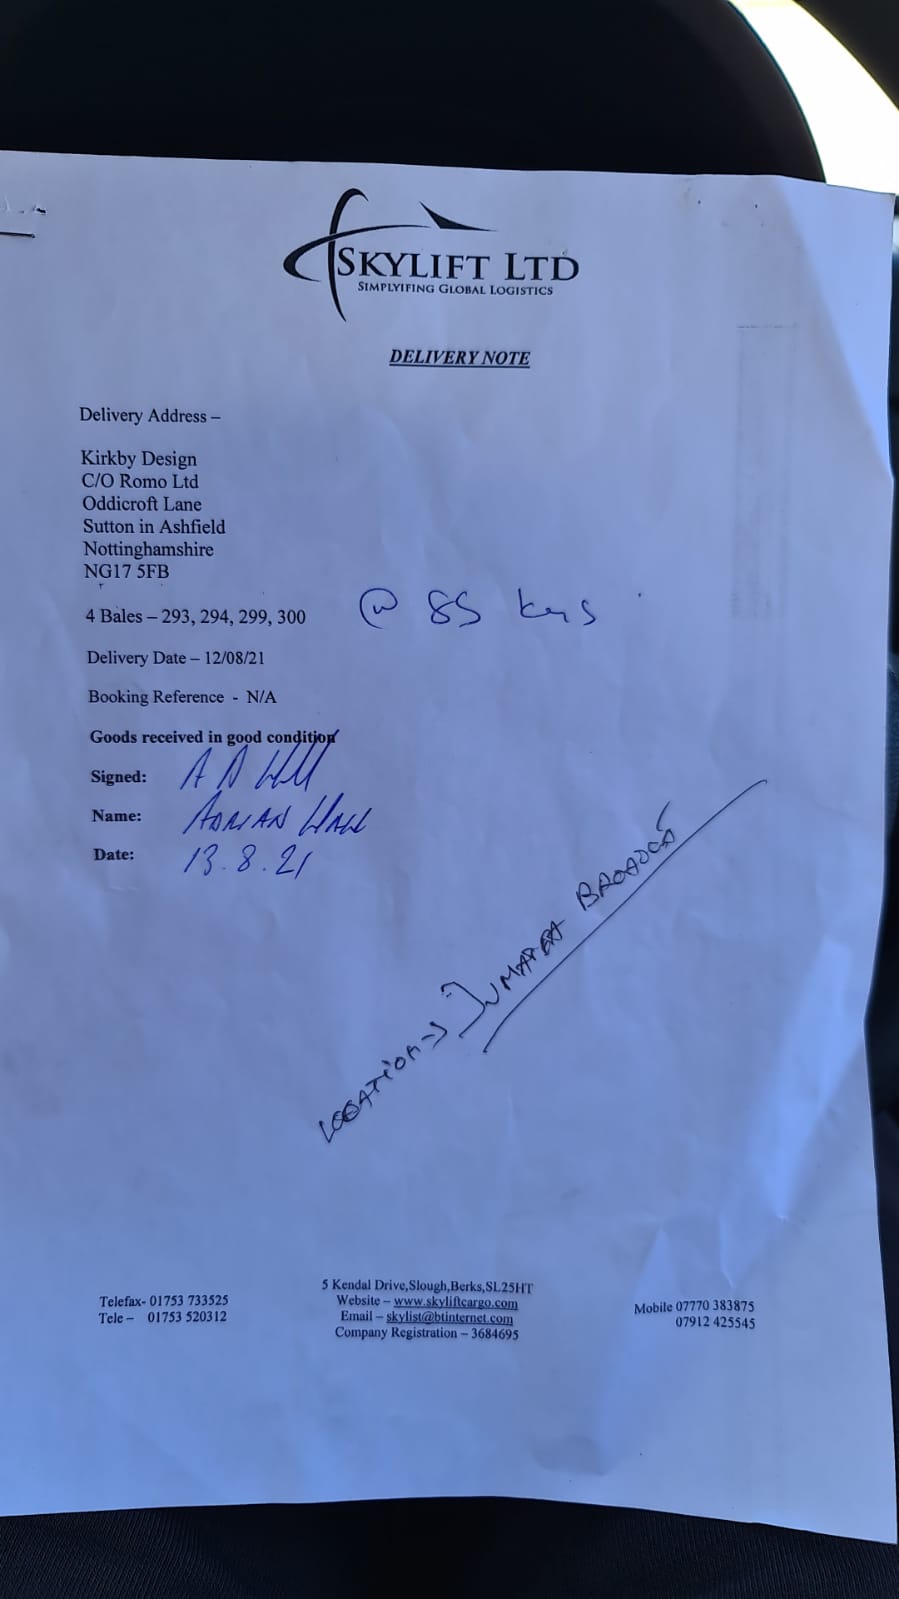 SKYLIFT LTD
SIMPLYIFING GLOBAL LOGISTICS
DELIVERY NOTE
Delivery Address –
Kirkby Design
C/O Romo Ltd
Oddicroft Lane
Sutton in Ashfield
Nottinghamshire
NG17 5FB
4 Bales – 293, 294, 299, 300 @ 85 kgs
Delivery Date – 12/08/21
Booking Reference - N/A
Goods received in good condition
Signed:
Name: ADRIAN
Date: 13.8.21
LOCATION
Telefax- 01753 733525
Tele – 01753 520312
5 Kendal Drive,Slough,Berks,SL25HT
Website – www.skyliftcargo.com
Email – skylist@btinternet.com
Company Registration – 3684695
Mobile 07770 383875
07912 425545